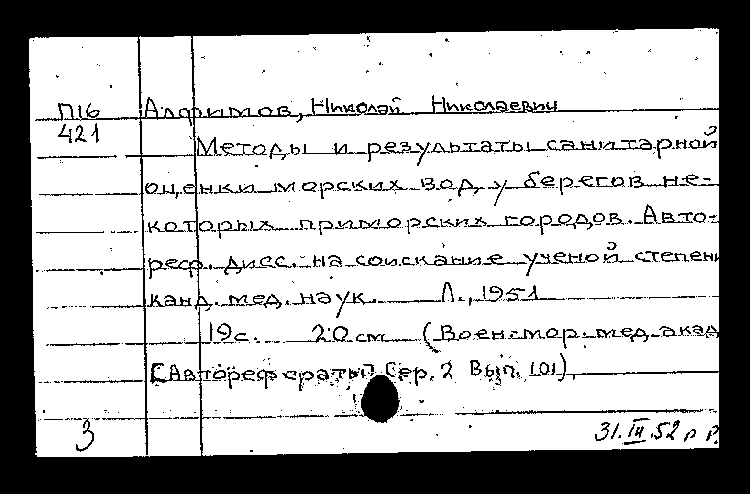 П16 Алфимов, Николай Николаевич
421
Методы и результаты санитарной
оценки морских вод у берегов не-
которых приморских городов. Авто-
реф. дисс. на соискание ученой степени
канд. мед. наук. Л., 1951
19с. 20 cm (Воен-мор. мед. акад
[Авторефераты Сер. 2 Вып. 101).
3 31.III.52 р р.